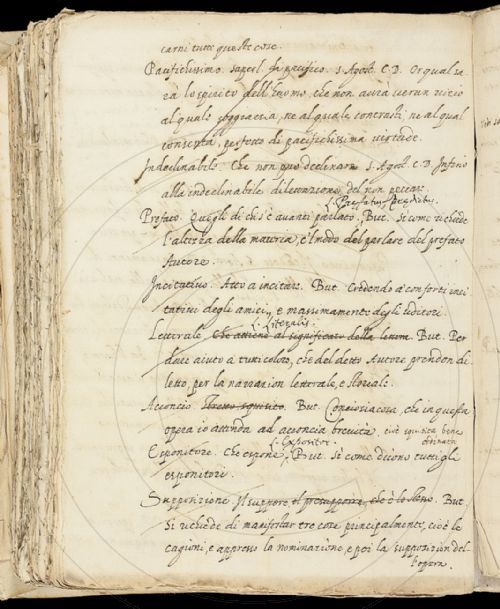 carni tutte queste cose.
Pacifichissimo. superl. di pacifico. S. Agost. C. D. Or qual sa
rà lo spirito dell'huomo, che non avrà verun vizio
al quale soggiaccia, ne al quale contrasti, ne al qual
consenta, perfetto di pacifichissima virtude.
Indeclinabile. Che non può declinare. S. Agost. C. D. Intorno
alla indeclinabile dilettazione del non peccar.
L. Prefatus, Praedictus.
Prefato. Quegli di chi s'è avanti parlato. But. Si come richiede
l'altezza della materia, e'l modo del parlare del prefato
Autore.
Incitativo. Atto a incitare. But. Credendo a' conforti inci
tativi degli amici, e massimamente degli uditori.
L. Literalis.
Letterale. Che attiene al significato della lettera. But. Per
dare aiuto a tutti coloro, che del detto Autore prendon di
letto, per la narrazion letterale, e
Acconcio. But. Concioßiacosa, che in questa
opera io attenda ad acconcia brevità. cioè squisita, bene
ordinata
L. Expositor.
Espositore. Che espone. But. Si come dicono tutti gli
espositori.
Supposizione. Il suppore, el presupporre, che è lo stesso. But.
Si richiede di manifestar tre cose principalmente, cioè le
cagioni, e appresso la nominazione, e poi la supposizion del-
l'opera.